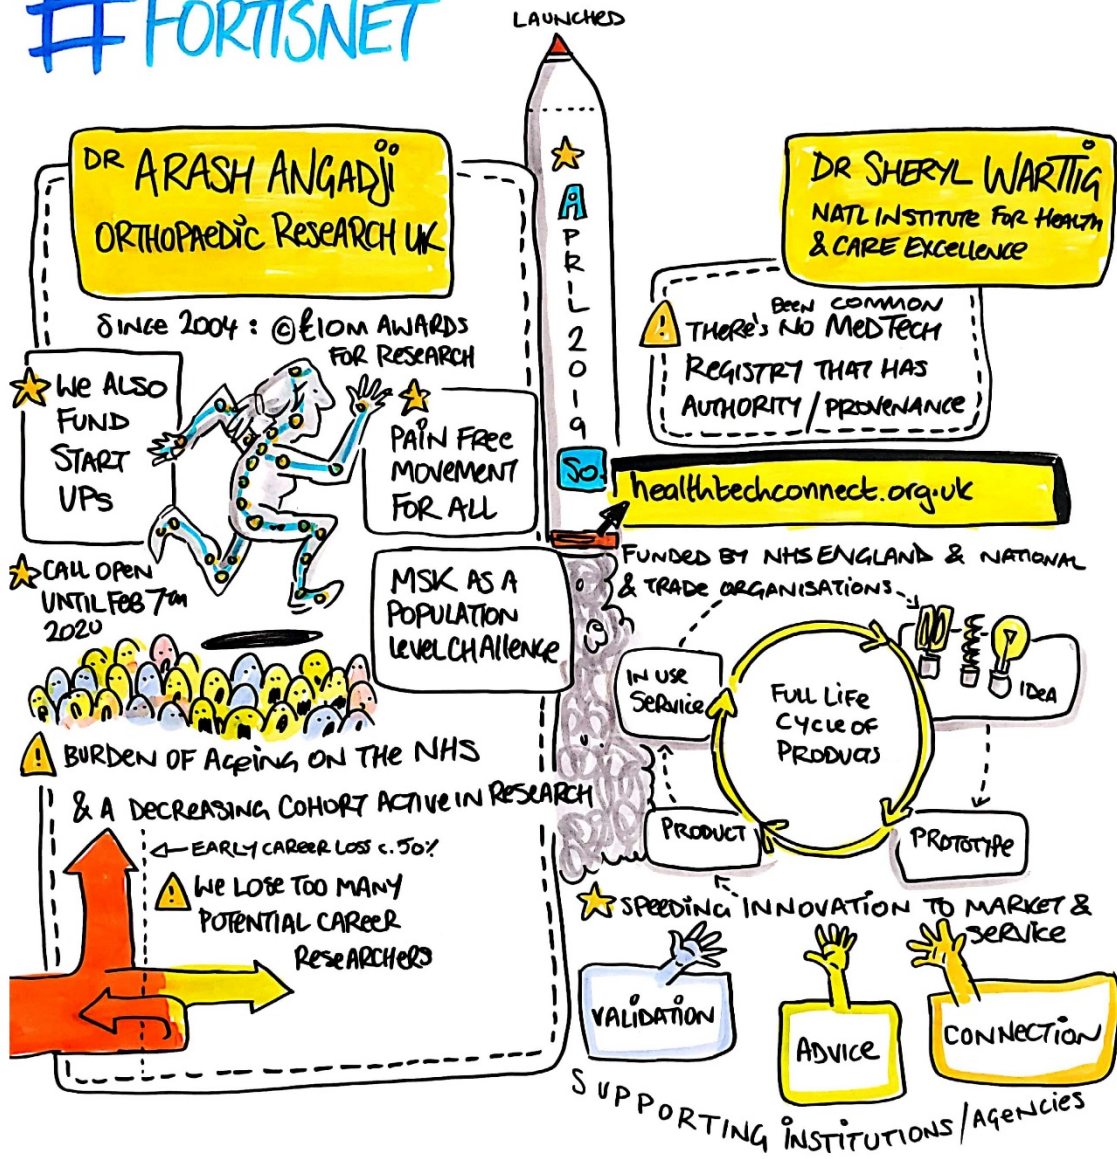 #FORTISNET
DR ARASH ANGADJI
ORTHOPAEDIC RESEARCH UK
SINCE 2004: ©£10M AWARDS
FOR RESEARCH
WE ALSO
FUND
START
UPS
PAIN FREE
MOVEMENT
FOR ALL
CALL OPEN
UNTIL FEB 7TH
2020
MSK AS A
POPULATION
LEVEL CHALLENGE
! BURDEN OF AGEING ON THE NHS
& A DECREASING COHORT ACTIVE IN RESEARCH
EARLY CAREER LOSS c.50%
! WE LOSE TOO MANY
POTENTIAL CAREER
RESEARCHERS
LAUNCHED
APRIL 2019
SO
DR SHERYL WARTTIG
NATL INSTITUTE FOR HEALTH
& CARE EXCELLENCE
BEEN COMMON
! THERE'S NO MEDTECH
REGISTRY THAT HAS
AUTHORITY/PROVENANCE
healthtechconnect.org.uk
FUNDED BY NHS ENGLAND & NATIONAL
& TRADE ORGANISATIONS
IN USE
SERVICE
FULL LIFE
CYCLE OF
PRODUCTS
IDEA
PRODUCT
PROTOTYPE
SPEEDING INNOVATION TO MARKET &
SERVICE
VALIDATION
ADVICE
CONNECTION
SUPPORTING INSTITUTIONS/AGENCIES